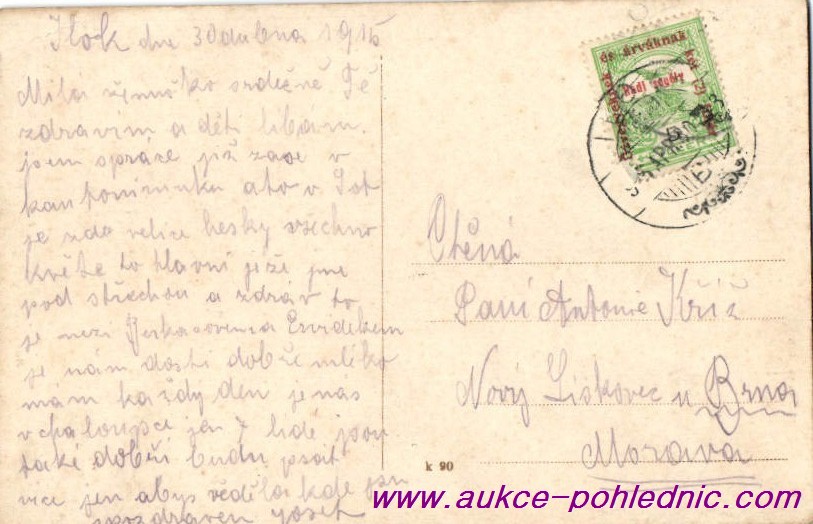 Ilok dne 30 dubna 1915
Milá ženuško srdečně Tě
zdravím a děti líbam.
jsem správě již zase v
kantonimku a to v Ist
je zde velice hesky všechno
květe to hlavní je že jme
pod střechou a zdráv to
je mezi
je nám dosti dobře mléko
mám každý den je nas
v chaloupce jen 7 lidé jsou
také dobří budu psát
více jen abys věděla kde jsem
pozdraven Josef
és árváknak
Hadi segély
Ctěná
Paní Antonie Kříž
Nový Liskovec u Brna
Morava
k 90
www.aukce-pohlednic.com